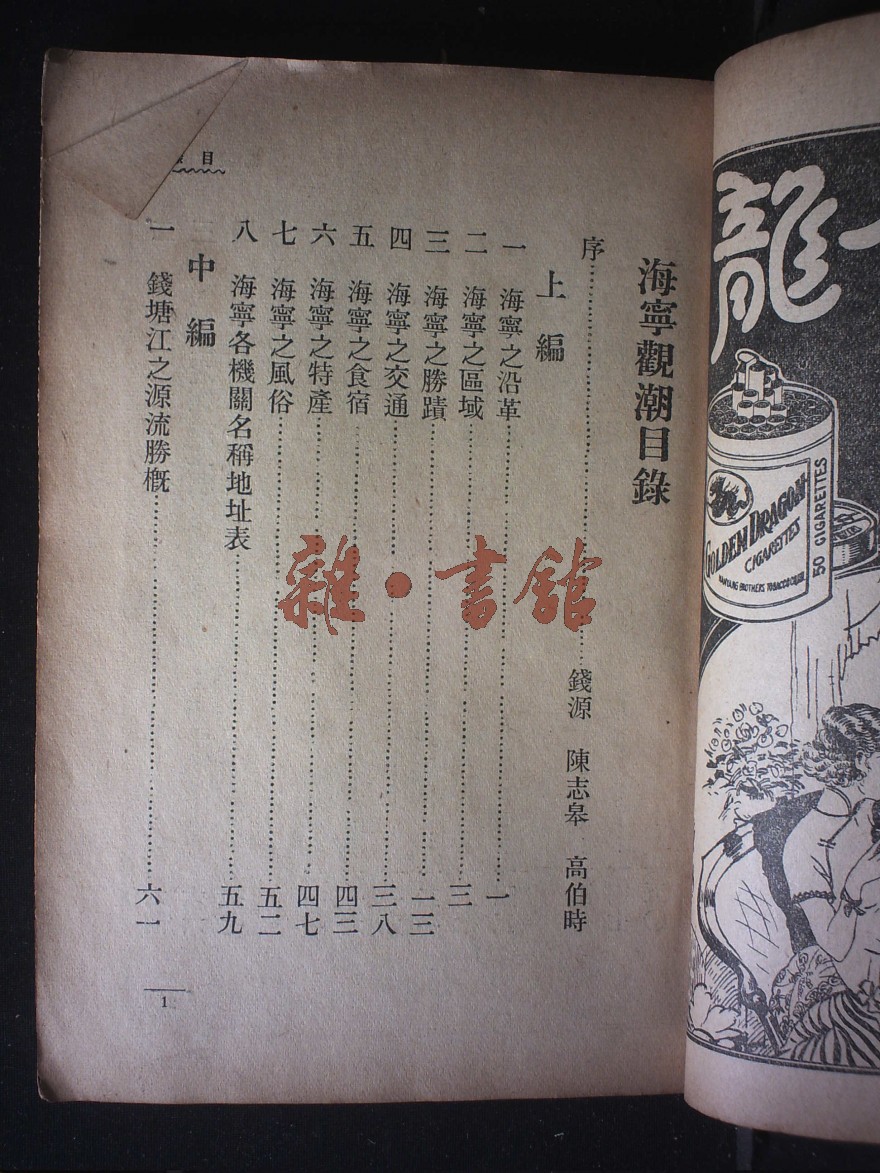 海寧觀潮目錄
序 錢源 陳志皋 高伯時
上編
一 海寧之沿革 一
二 海寧之區域 三
三 海寧之勝蹟 一三
四 海寧之交通 三八
五 海寧之食宿 四三
六 海寧之特產 四七
七 海寧之風俗 五二
八 海寧各機關名稱地址表 五九
中編
一 錢塘江之源流勝概 六一
目
1
雜·書館
龍
GOLDEN DRAGON
CIGARETTES
NANYANG BROTHERS TOBACCO
50 CIGARETTES